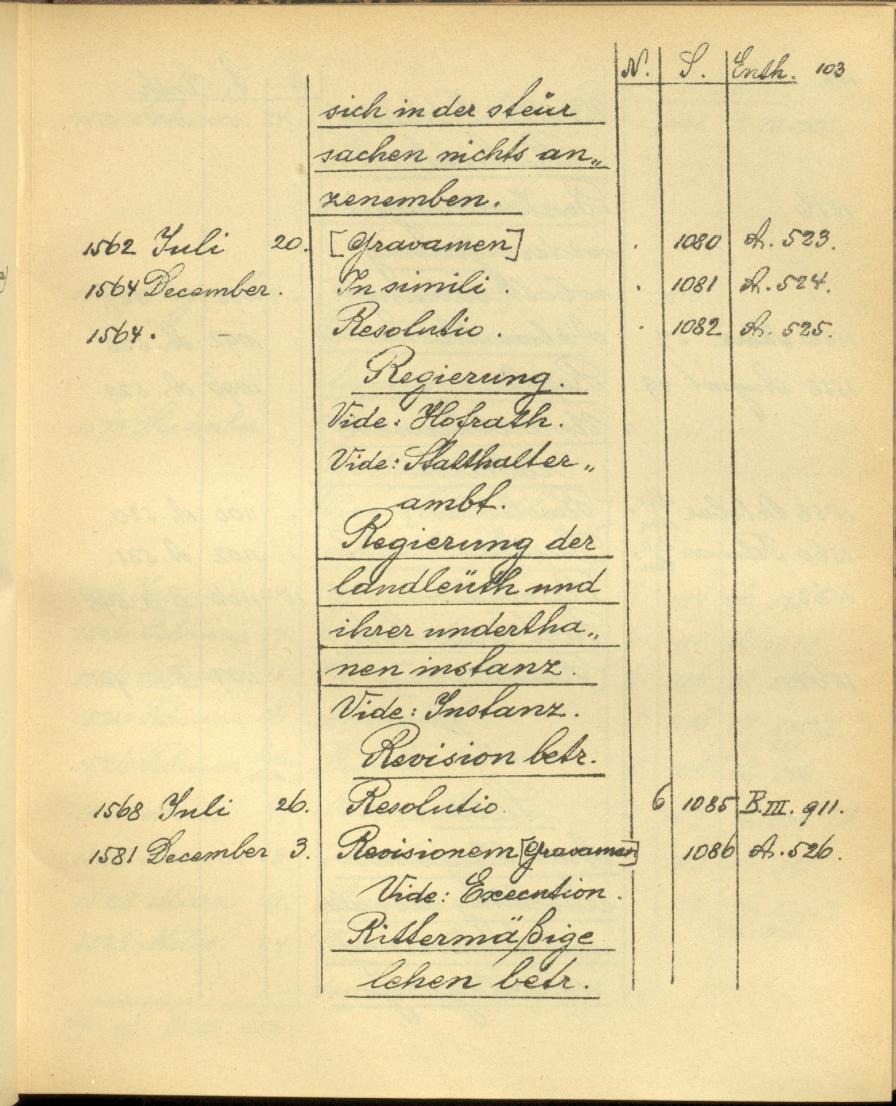 N. S. Enth. 103
sich in der steür
sachen nichts an„
zenemben.
1562 Juli 20. [Gravamen] . 1080 A. 523.
1564 December. In simili . 1081 A. 524.
1564. – Resolutio. . 1082 A. 525.
Regierung.
Vide: Hofrath.
Vide: Statthalter„
ambt.
Regierung der
landleüth und
ihrer undertha„
nen instanz.
Vide: Instanz.
Revision betr.
1568 Juli 26. Resolutio. 6 1085 B.III. 911.
1581 December 3. Revisionem [Gravamen] 1086 A. 526.
Vide: Execution.
Rittermäßige
lehen betr.